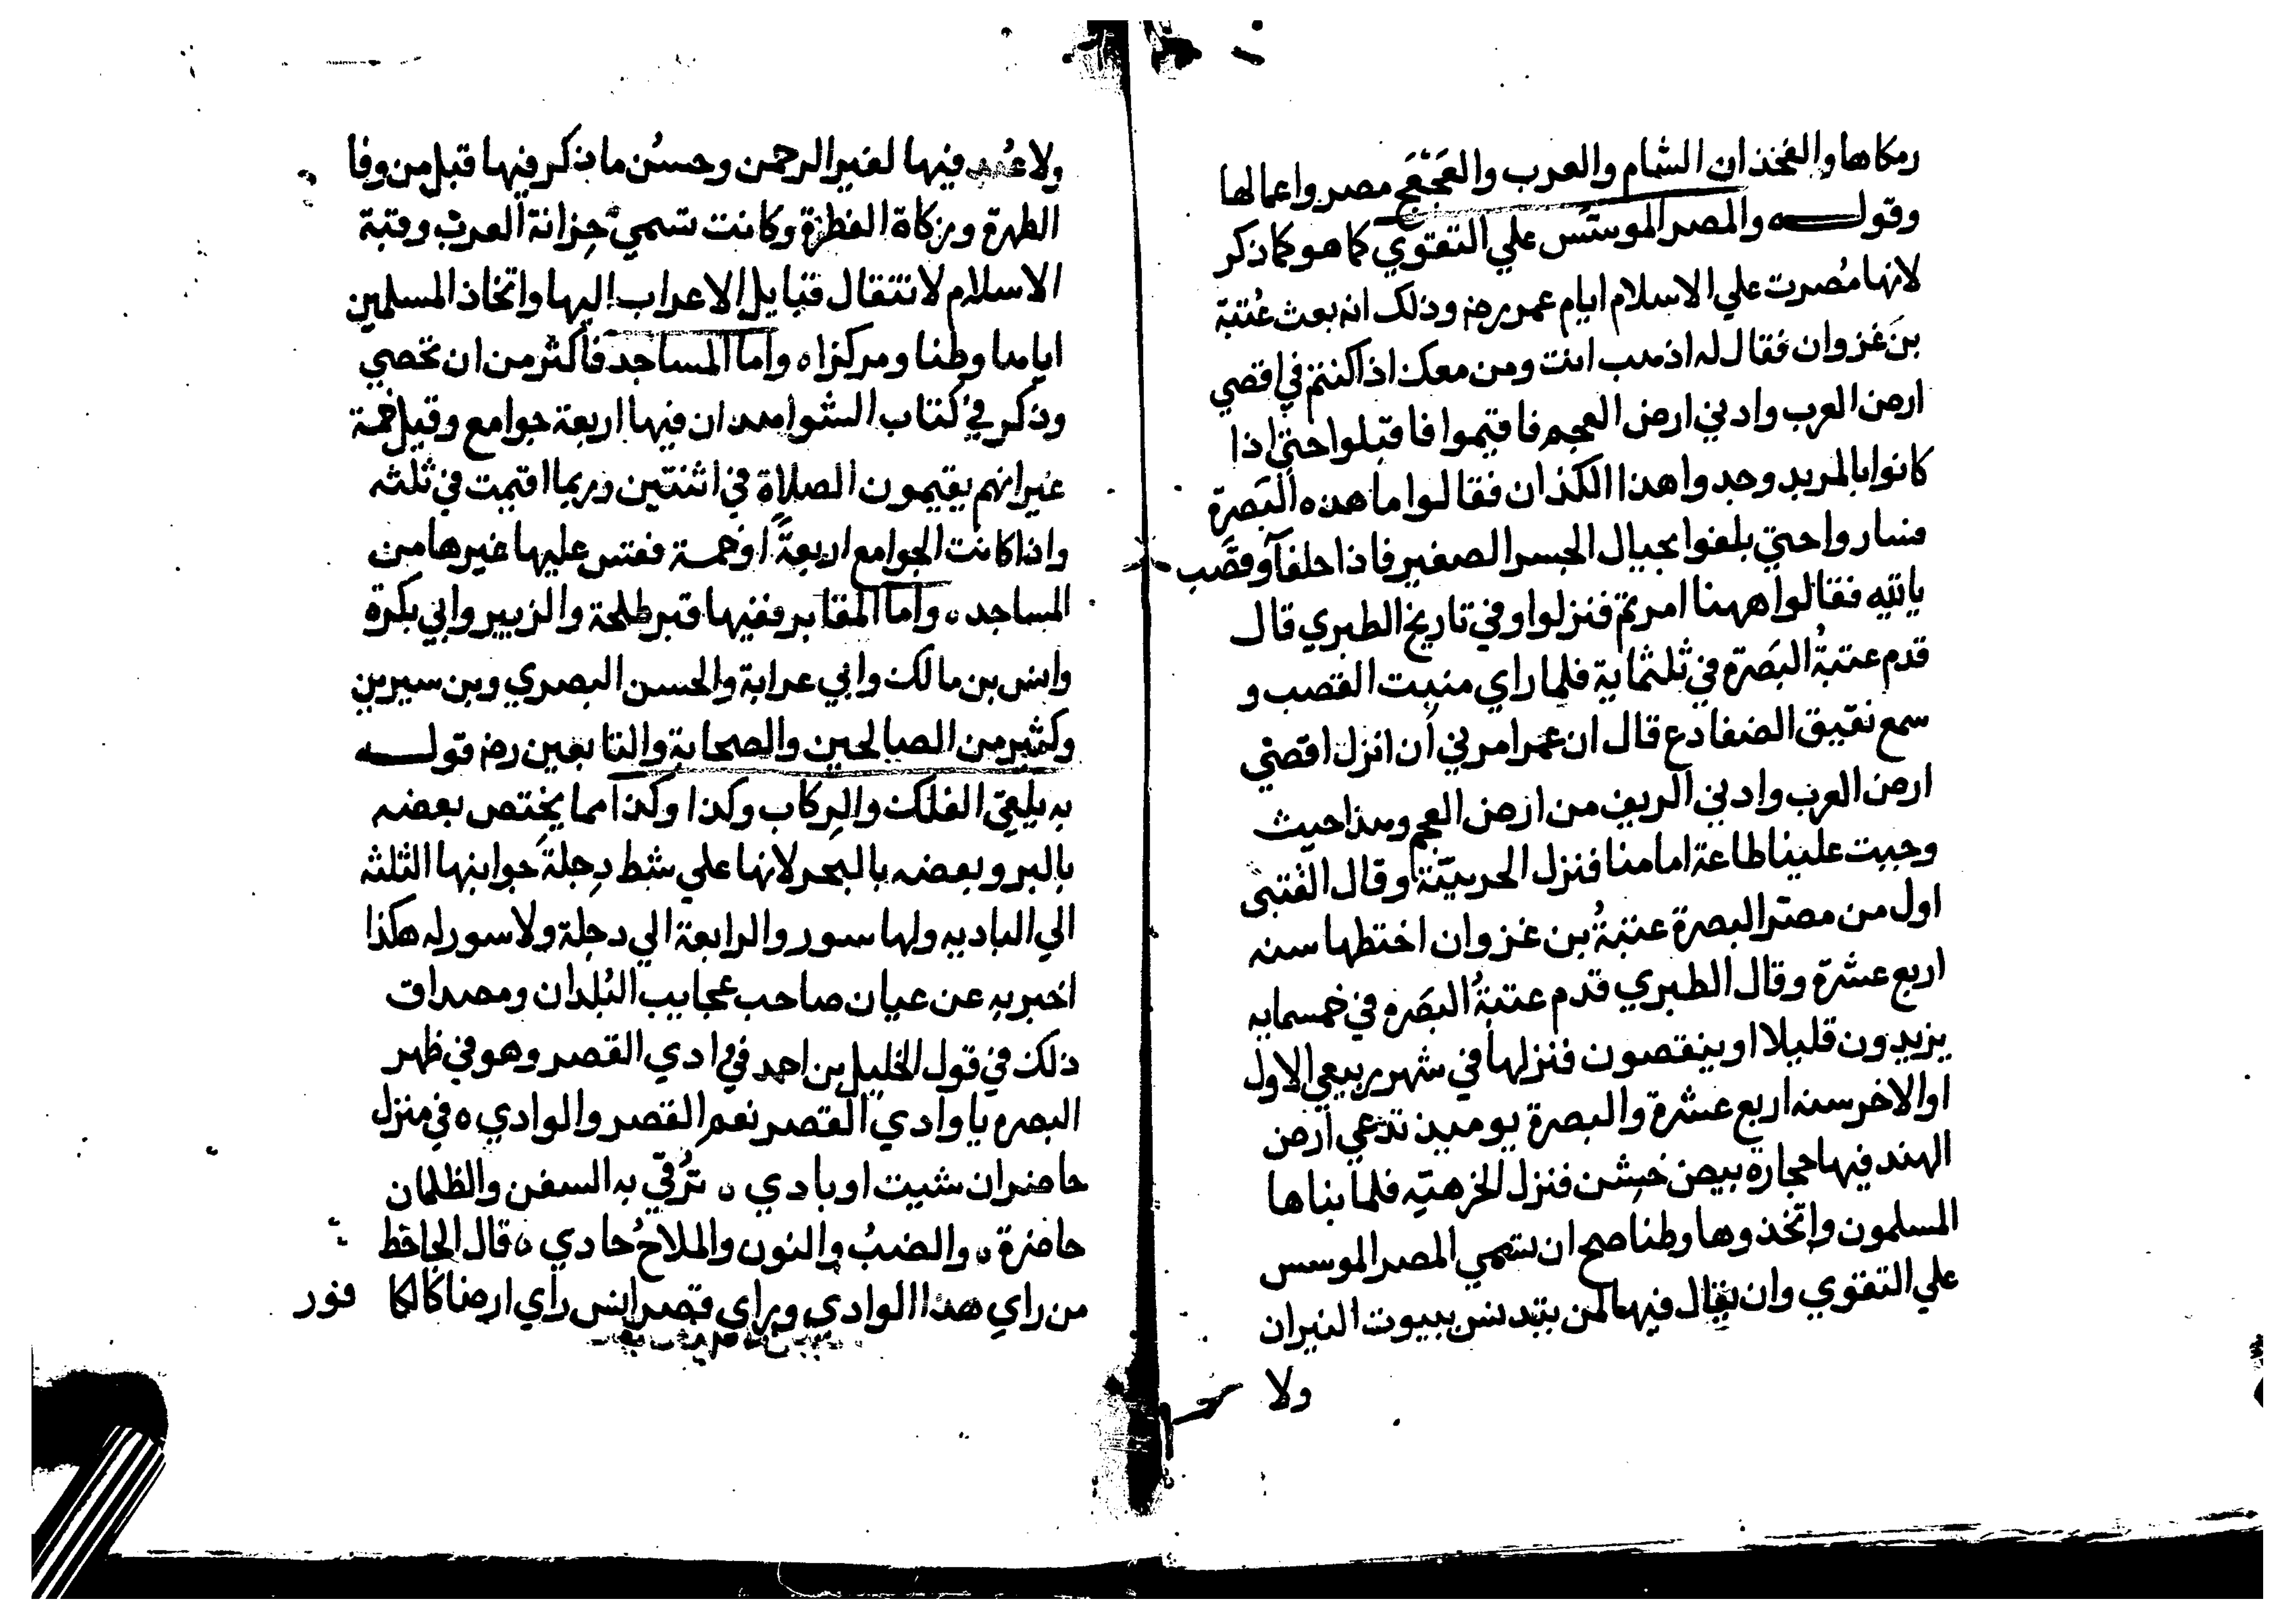 رمكاها والفخذان الشام والعرب والعَجْعَج مصر واعمالها
وقولـــه والمصر الموسّس علي التقوي كما هو كما ذكر
لانها مُصرت علي الاسلام ايام عمر رضه وذلك انه بعث عُتبة
بن غزوان فقال له اذهب انت ومن معك اذا كنتم في اقصي
ارض العرب وادني ارض العجم فاقيموا فاقبلوا حتي اذا
كانوا بالمربد وجدوا هذا الكذان فقالوا ما هذه البَصرة
فساروا حتي بلغوا بحيال الجسر الصغير فاذا حلفآ وقصَب
يانته فقالوا ههنا امرتم فنزلوا وفي تاريخ الطبري قال
قدم عتبةُ البَصَرة في ثلثماية فلما راي منبت القصب و
سمع نقيق الضفادع قال ان عمر امرني أن انزل اقصي
ارض العرب وادني الريف من ارض العجم وهذا حيث
وجبت علينا طاعة امامنا فنزل الحريبّة وقال القتبى
اول من مصّر البصرة عتبةُ بن غزوان اختطها سنه
اربع عشرة وقال الطبري قدم عتبةُ البصَره في خمسمايه
يزيدون قليلا او ينقصون فنزلها في شهر ربيعي الاول
او الاخر سنه اربع عشرة والبصرة يوميذ تدعي ارض
الهند فيها حجاره بيض خشن فنزل الخرهيّه فلما بناها
المسلمون واتخذوها وطنا صح ان تسمي المصر الموسس
علي التقوي وان يقال فيها لمن يتدنس ببيوت النيران
ولا
ولا عُبد فيها لغير الرحمن وحسُن ما ذكر فيها قبل من وفا
الطهرة وزكاة الفطرة وكانت تسمي خِزانة العرب وقبة
الاسلام لانتقال قبايل الاعراب اليها واتخاذ المسلمين
اياها وطنا ومركزاه واما المساجد فاكثر من ان تحصي
وذكر في كتاب الشواهد ان فيها اربعة جوامع وقيل خمسة
غير انهم يقيمون الصلاة في اثنتين وربما اقيمت في ثلثه
واذا كانت الجوامع اربعةً او خمسة فقس عليها غيرها من
المساجده واما المقابر ففيها قبر طلحة والزبير وابي بكرة
وانس بن مالك وابي عرابة والحسن البصري وبن سيرين
وكثير من الصالحين والصحابة والتابعين رضه قولـــه
به يلتقي الفلك والرِكاب وكذا وكذا مما يختص بعضه
بالبر وبعضه بالبحر لانها علي شط دِجلة جوانبها الثلثه
الي الباديه ولها سور والرابعة الي دجلة ولا سور له هكذا
اخبر به عن عيان صاحب عجايب البُلدان ومصداق
ذلك في قول الخليل بن احمد في وادي القصر وهو في ظهر
البصره يا وادي القصر نعم القصر والوادي ه في منزل
حاضر ان شيت او بادي ه تُرقي به السفن والظلمان
حاضرة ه والضبُ والنون والملاحُ حادي ه قال الجاحظ
من راي هذا الوادي وراي قصر انس راي ارضا كالكا فور